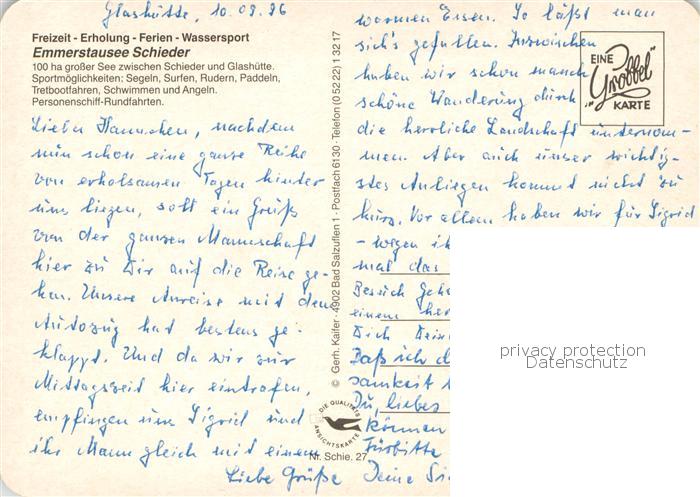 Glashütte, 10.09.96
Freizeit - Erholung - Ferien - Wassersport
Emmerstausee Schieder
100 ha großer See zwischen Schieder und Glashütte.
Sportmöglichkeiten: Segeln, Surfen, Rudern, Paddeln,
Tretbootfahren, Schwimmen und Angeln.
Personenschiff-Rundfahrten.
Liebes Hannchen, nachdem
nun schon eine ganze Reihe
von erholsamen Tagen hinter
uns liegen, soll ein Gruß
von der ganzen Mannschaft
hier zu Dir auf die Reise ge-
hen. Unsere Anreise mit dem
Autozug hat bestens ge-
klappt. Und da wir zur
Mittagszeit hier eintrafen,
empfingen uns Sigrid und
ihr Mann gleich mit einem
© Gerh. Kaifer · 4902 Bad Salzuflen 1 · Postfach 6130 · Telefon (0 52 22) 1 32 17
DIE QUALITÄTS
ANSICHTSKARTE
Nr. Schie. 27
warmen Essen. So läßt man
sich's gefallen. Inzwischen
haben wir schon manch
schöne Wanderung durch
die herrliche Landschaft unternom-
men. Aber auch unser wichtig-
stes Anliegen kommt nicht zu
kurz. Vor allem haben wir für Sigrid
- wegen
mal das
Besuch
einem
Dich
Daß ich
samkeit
Du, liebes
können
Fürbitte
Liebe Grüße Deine
EINE
"Gröbbel"
KARTE
privacy protection
Datenschutz